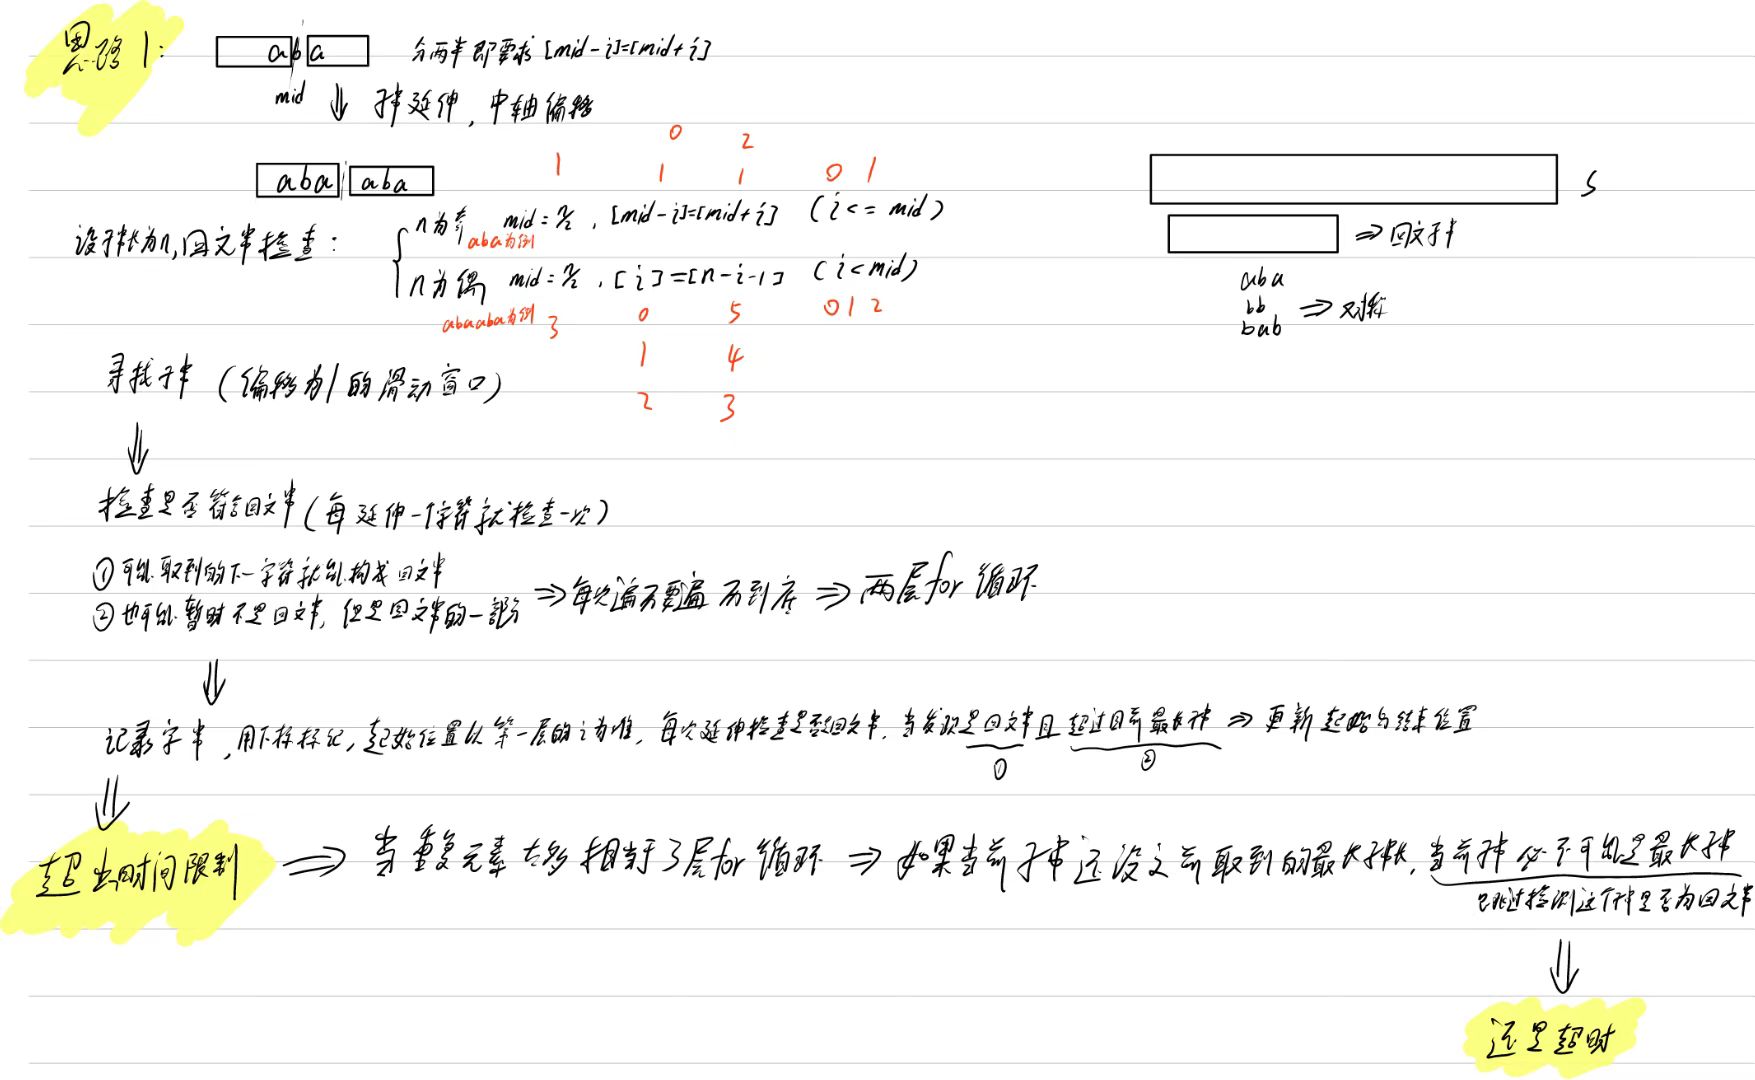 思路1:
aba
分两半即要求[mid-i]=[mid+i]
mid
子串延伸，中轴偏移
0 2
1 1 1 0 1
aba aba
S
n为奇 mid=n/2，[mid-i]=[mid+i] (i<=mid)
aba为例
设子串长为n,回文串检查：
⇒回文子串
n为偶 mid=n/2，[i]=[n-i-1] (i<mid)
aba
bb
bab
⇒对称
abaaba为例 3 0 5 0 1 2
1 4
2 3
寻找子串（偏移为1的滑动窗口）
检查是否符合回文串（每延伸一个字符就检查一次）
①可能取到的下一字符就能构成回文串
②也可能暂时不是回文串，但是回文串的一部分
⇒每次遍历要遍历到底⇒两层for循环
记录字串，用下标标记，起始位置以第一层的i为准，每次延伸检查是否回文串，当发现是回文串且超过目前最长子串⇒更新起始与结束位置
① ②
超出时间限制⇒当重复元素太多相当于3层for循环⇒如果当前子串还没之前取到的最长子串长，当前子串必不可能是最长子串
跳过检测这个子串是否为回文串
还是超时